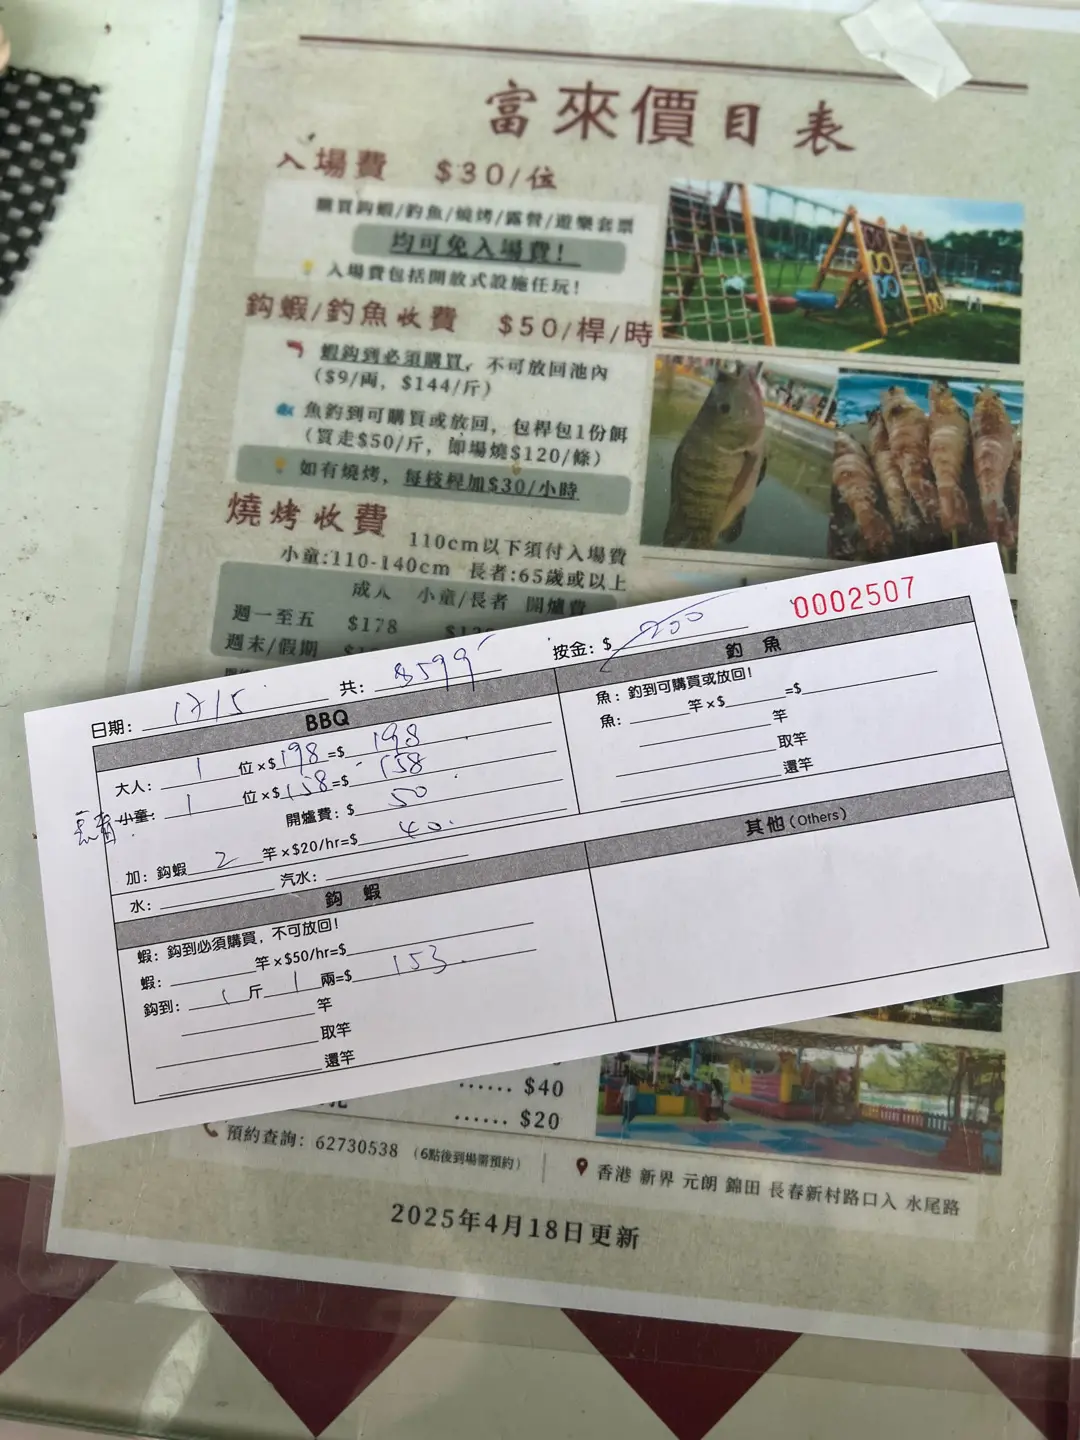 富來價目表
入場費 $30/位
購買鈎蝦/釣魚/燒烤/露營/遊樂套票
均可免入場費!
入場費包括開放式設施任玩!
鈎蝦/釣魚收費 $50/桿/時
蝦鈎到必須購買，不可放回池內
($9/両，$144/斤)
魚釣到可購買或放回，包桿包1份餌
(買走$50/斤，即場燒$120/條)
如有燒烤，每枝桿加$30/小時
燒烤收費 110cm以下須付入場費
小童:110-140cm 長者:65歲或以上
成人 小童/長者 開爐費
週一至五 $178
週末/假期
0002507
日期: 17/5 共: $599 按金: $ 200
BBQ
大人: 1 位×$ 198 =$ 198
長者 小童: 1 位×$ 158 =$ 158
開爐費: $ 50
加: 鈎蝦 2 竿×$20/hr=$ 40
水: 汽水:
鈎 蝦
蝦: 鈎到必須購買，不可放回!
蝦: 竿×$50/hr=$
鈎到: 1 斤 1 兩=$ 153
竿
取竿
還竿
釣 魚
魚: 釣到可購買或放回!
魚: 竿×$ =$
竿
取竿
還竿
其他 (Others)
...... $40
...... $20
預約查詢: 62730538 (6點後到場需預約)
香港 新界 元朗 錦田 長春新村路口入 水尾路
2025年4月18日更新